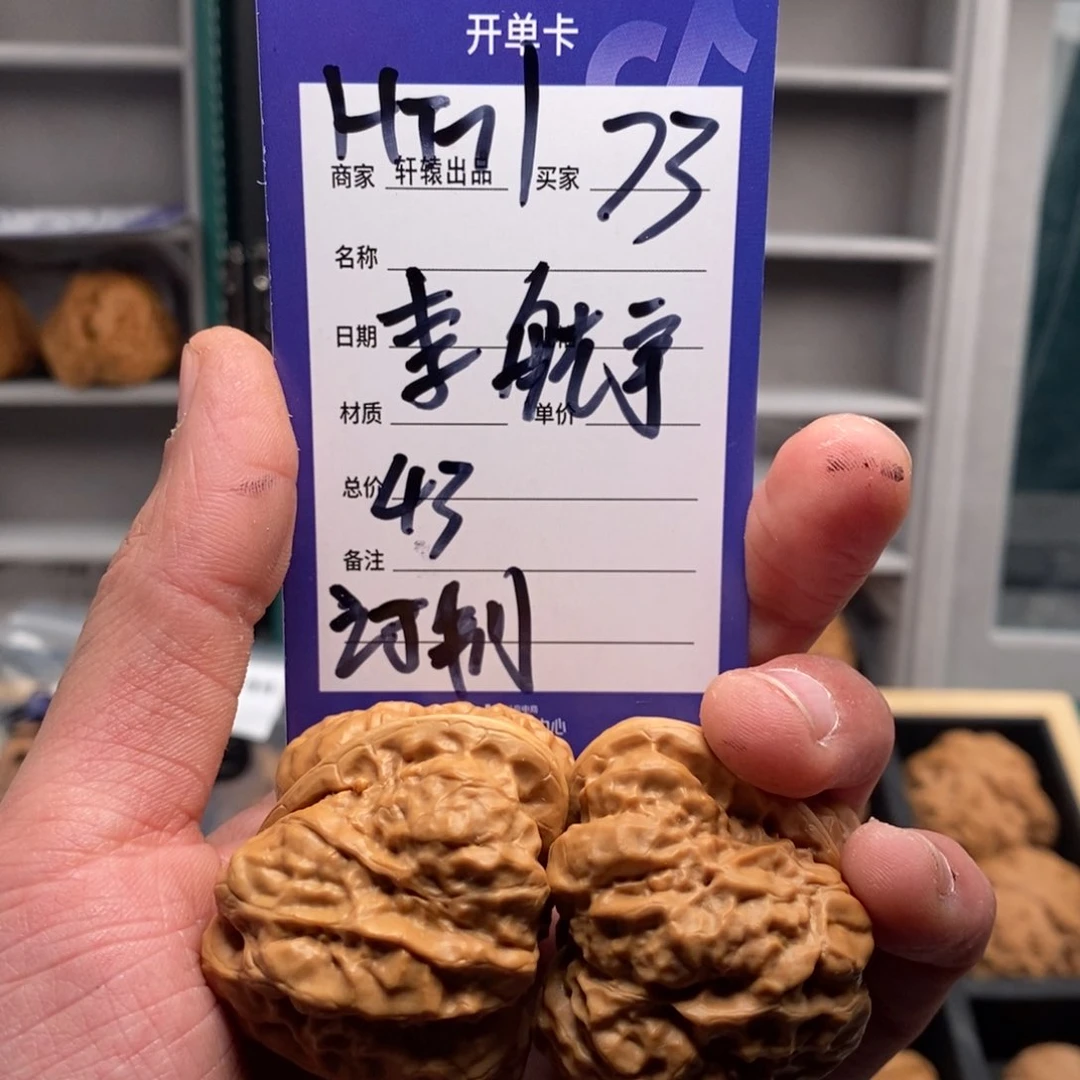 开单卡
HTM 73
商家 轩辕出品 买家
名称
日期
李航宇
材质 单价
总价 43
备注
订制
中心